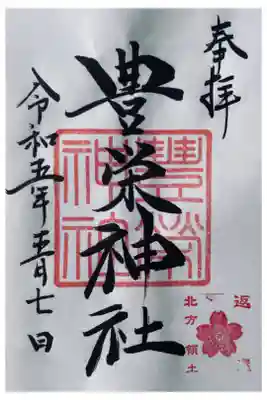 奉拝
豊栄神社
令和五年五月七日
豐榮
神社
返
北方領土